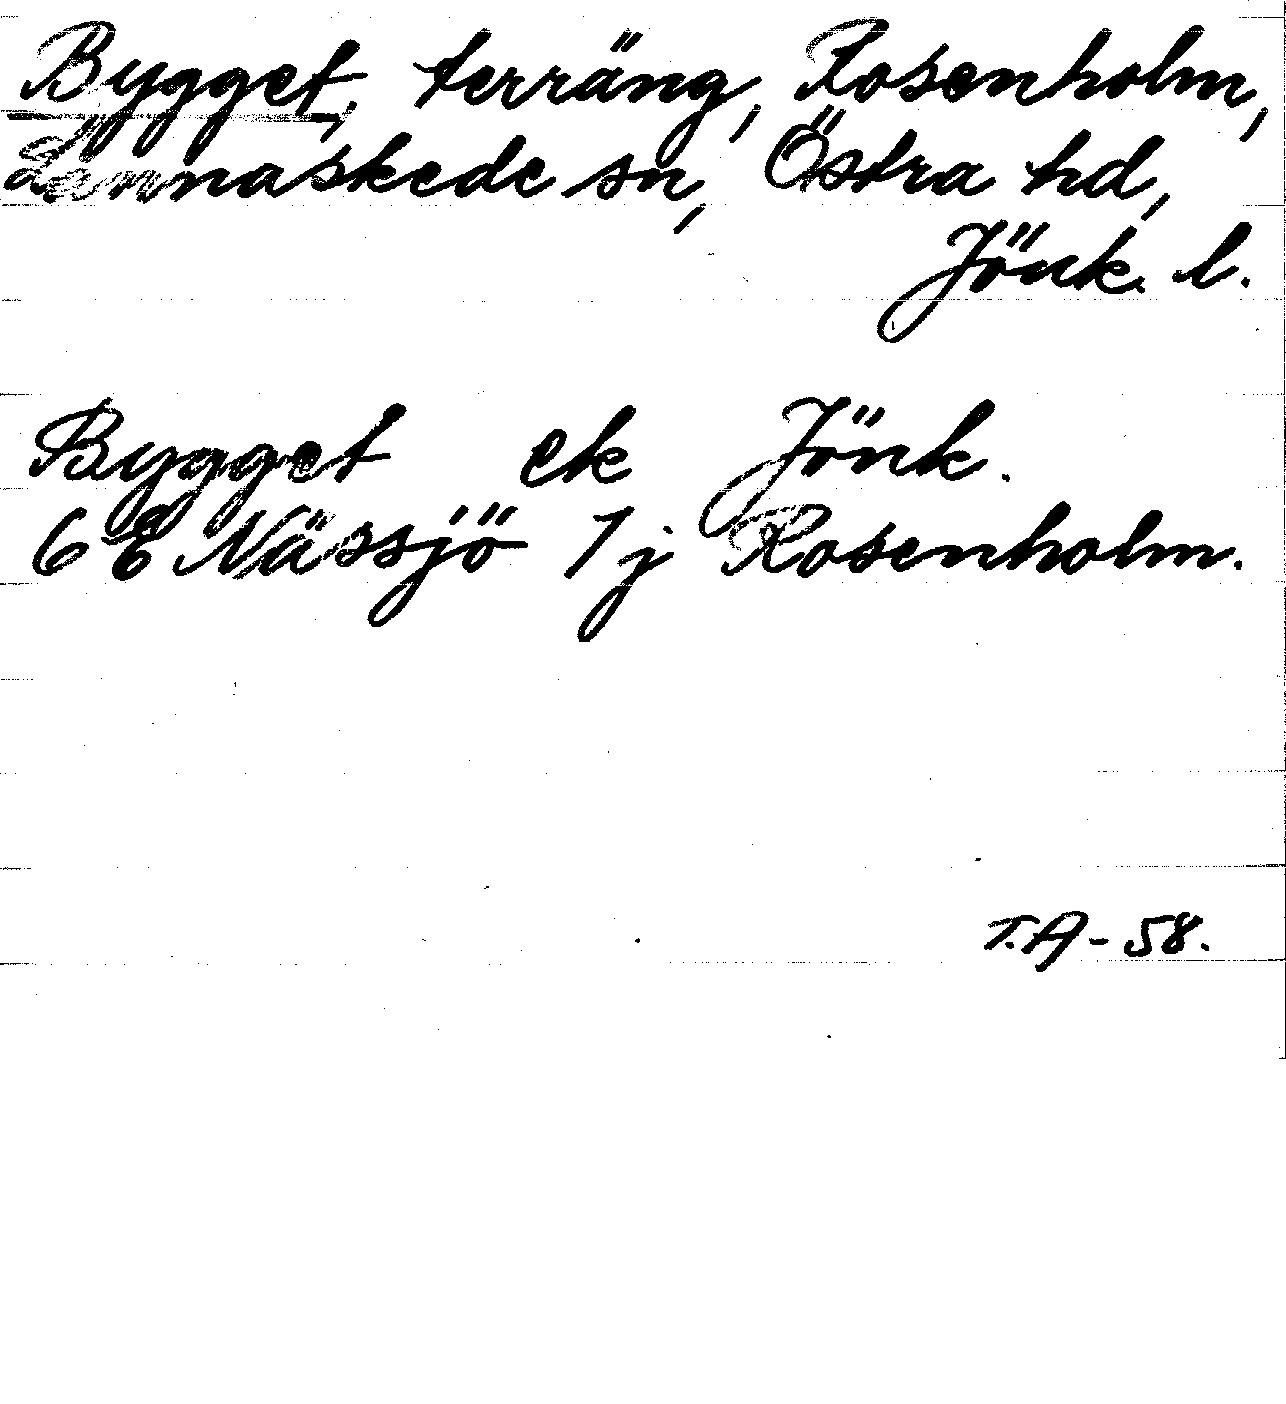 Bygget, terräng, Rosenholm,
Lannaskede sn, Östra hd,
Jönk. l.
Bygget ek Jönk.
6 E Nässjö 7 j Rosenholm.
T.A - 58.